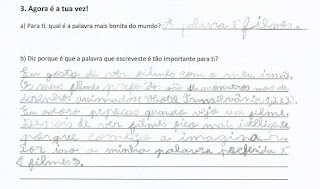 3. Agora é a tua vez!
a) Para ti, qual é a palavra mais bonita do mundo? A palavra é filmes.
b) Diz porque é que a palavra que escreveste é tão importante para ti?
Eu gosto de ver filmes com o meu irmão.
Os meus filmes preferidos são de monstros mas de
desenhos animados: Hotel Transilvânia 1, 2 e 3.
Eu adoro pipocas quando vejo um filme.
Depois de ver filmes fico mais inteligente
porque começo a imaginar.
Por isso a minha palavra preferida é
filmes.